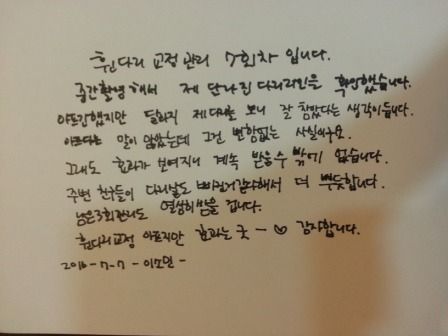 휜다리 교정 관리 7회차 입니다.
중간촬영해서 제 달라진 다리라인을 확인했습니다.
아프긴했지만 달라진 제다리를 보니 잘 참았다는 생각이듭니다.
아프다는 말이 많았는데 그건 변함없는 사실이구요.
그래도 효과가 보여지니 계속 받을수 밖에 없습니다.
주변 친구들이 다리날도 삐진거같다해서 더 뿌듯합니다.
남은3회관리도 열심히받을 겁니다.
휜다리교정 아프지만 효과는 굿 - ♡ 감사합니다.
2016-7-7 - 이소민 -